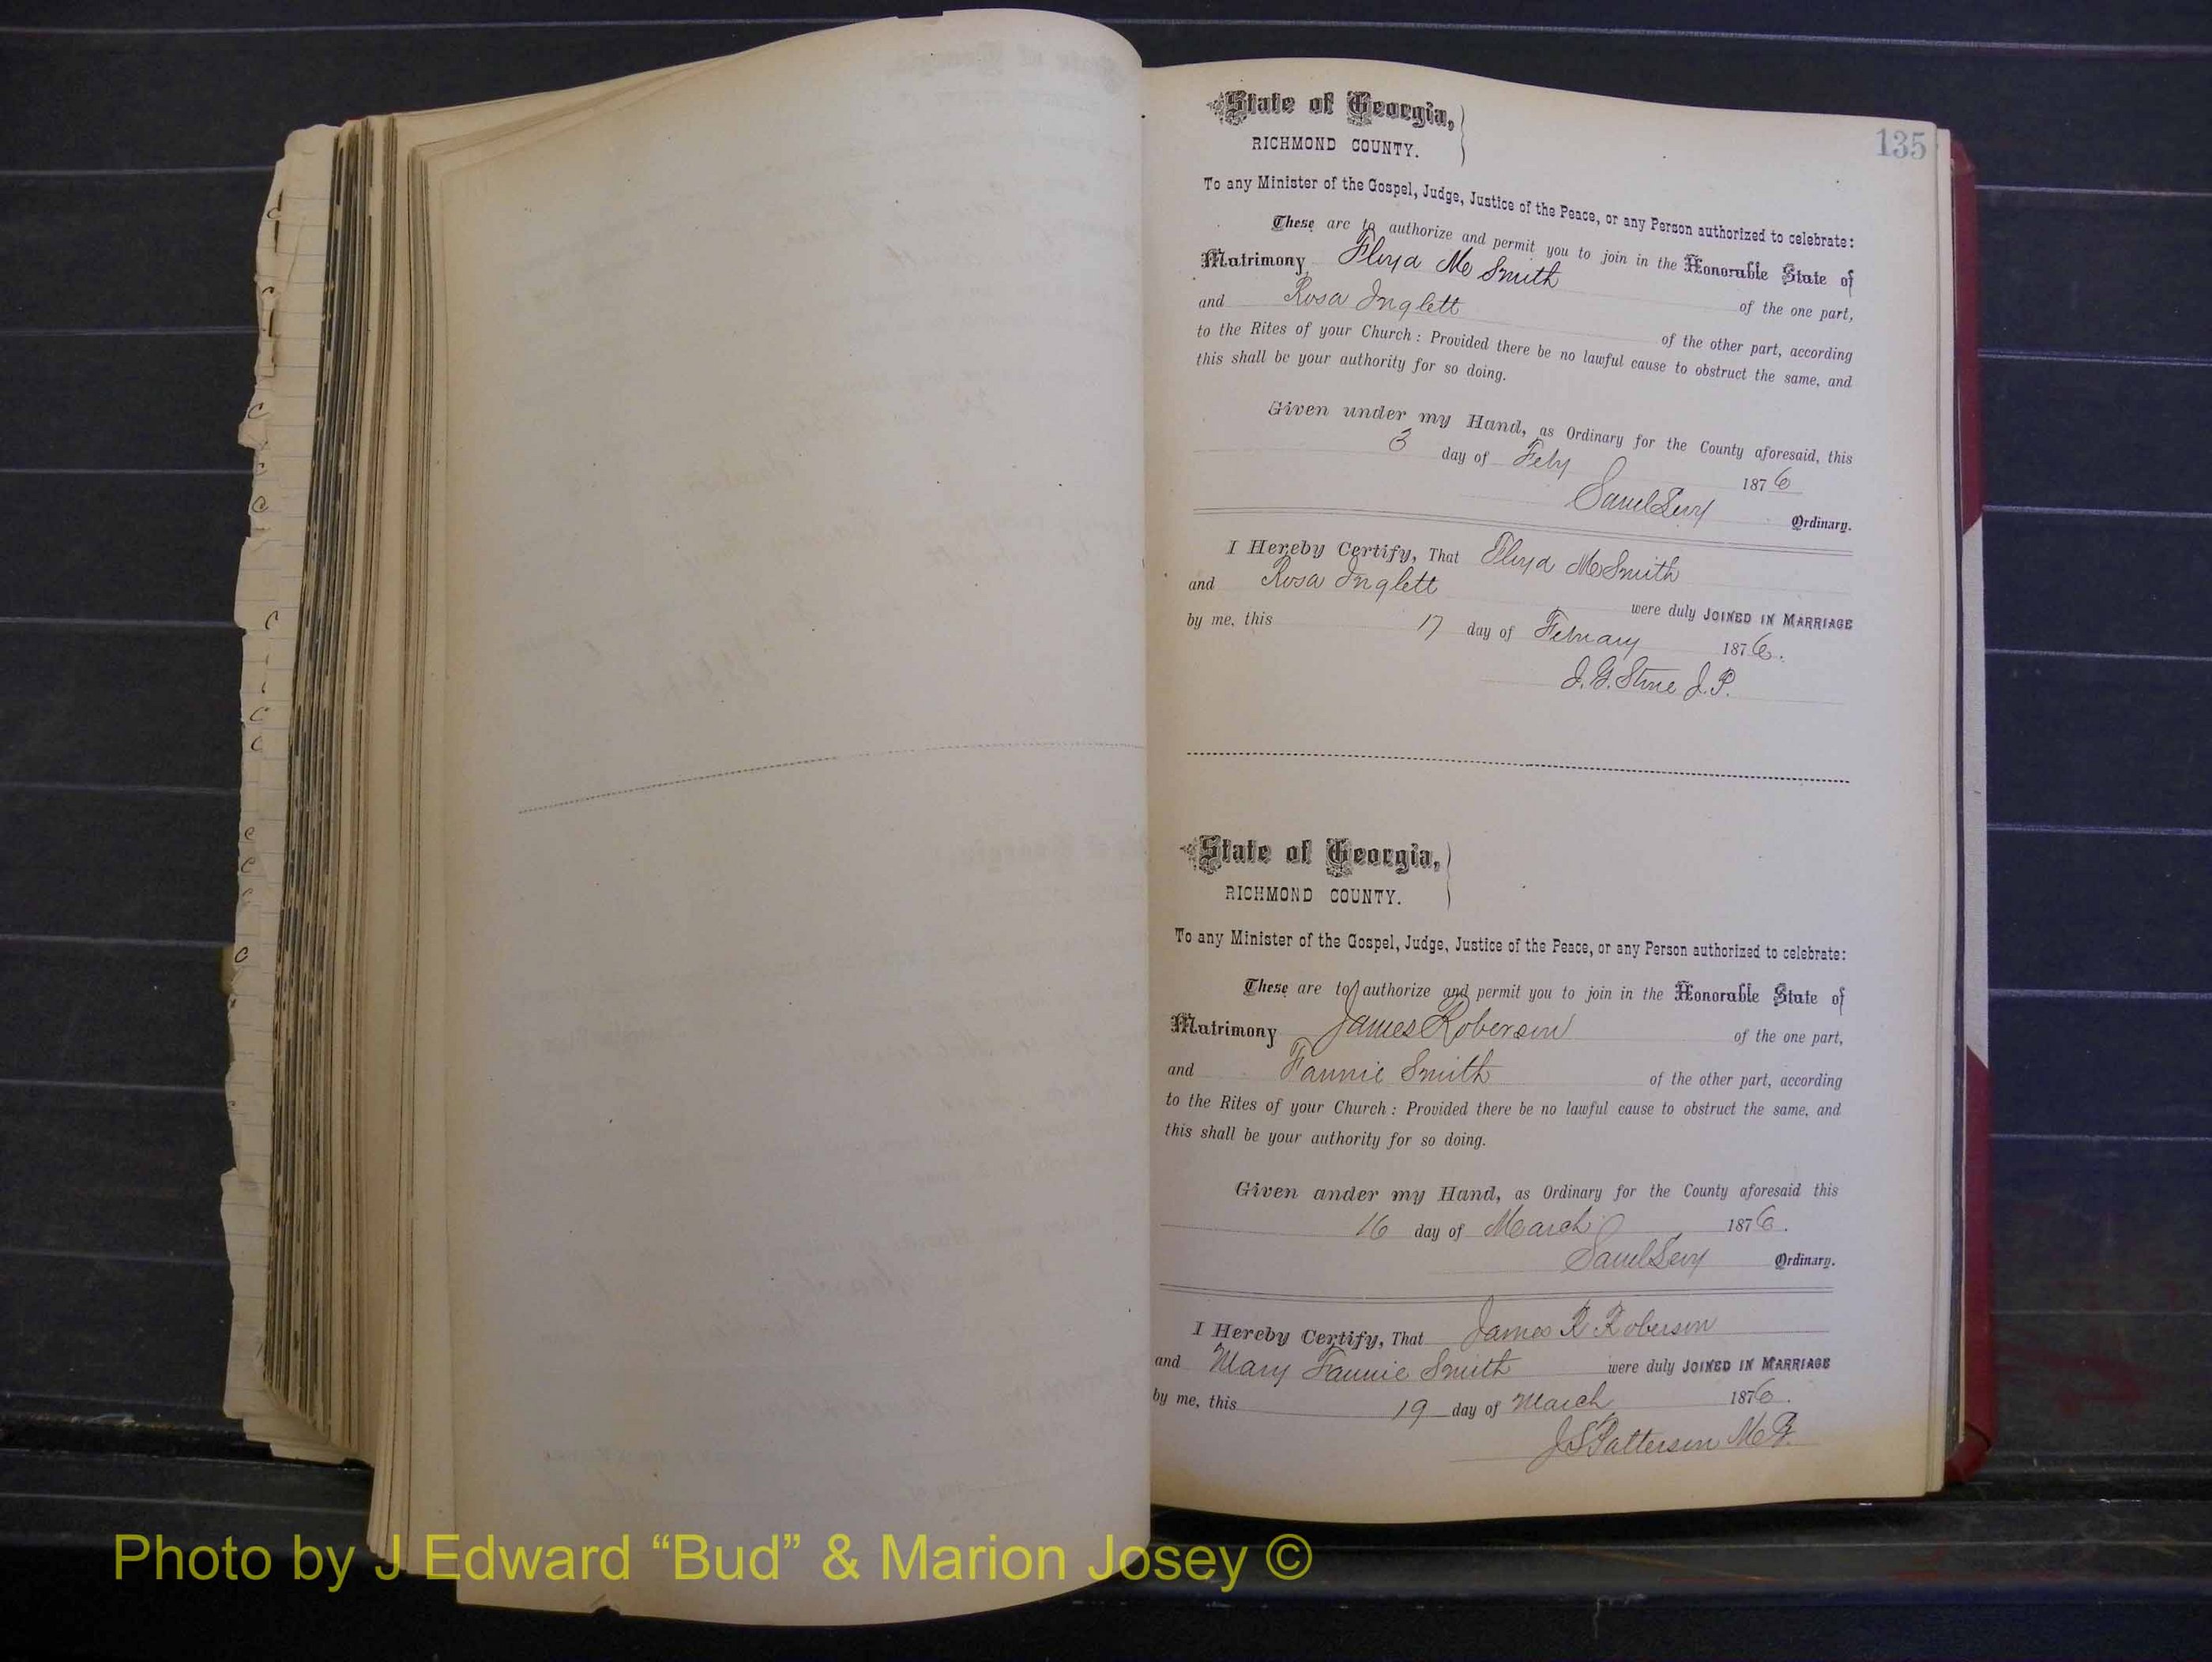 135
State of Georgia,
RICHMOND COUNTY.
To any Minister of the Gospel, Judge, Justice of the Peace, or any Person authorized to celebrate:
These are to authorize and permit you to join in the Honorable State of
Matrimony Floyd M Smith of the one part,
and Rosa Inglett of the other part, according
to the Rites of your Church: Provided there be no lawful cause to obstruct the same, and
this shall be your authority for so doing.
Given under my Hand, as Ordinary for the County aforesaid, this
3 day of Feby 1876
Saml Levy Ordinary.
I Hereby Certify, That Floyd M Smith
and Rosa Inglett were duly JOINED IN MARRIAGE
by me, this 17 day of February 1876.
J. G. Stone J. P.
State of Georgia,
RICHMOND COUNTY.
To any Minister of the Gospel, Judge, Justice of the Peace, or any Person authorized to celebrate:
These are to authorize and permit you to join in the Honorable State of
Matrimony James Roberson of the one part,
and Fannie Smith of the other part, according
to the Rites of your Church: Provided there be no lawful cause to obstruct the same, and
this shall be your authority for so doing.
Given under my Hand, as Ordinary for the County aforesaid this
16 day of March 1876.
Saml Levy Ordinary.
I Hereby Certify, That James R Roberson
and Mary Fannie Smith were duly JOINED IN MARRIAGE
by me, this 19 day of March 1876.
J S Patterson M G.
Photo by J Edward “Bud” & Marion Josey ©